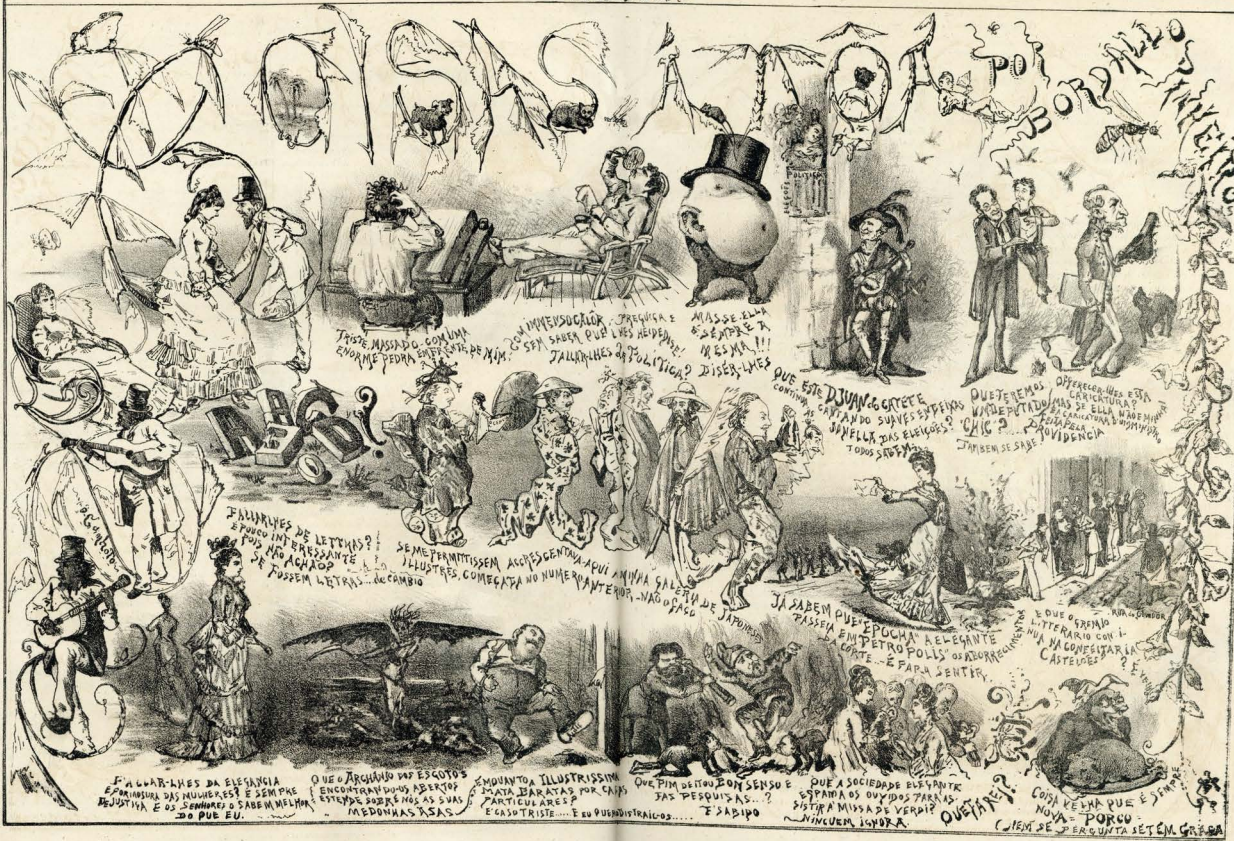 COISAS ATOA POR
BORDALLO
PINHEIRO
POLITICA
TRISTE, MASSADO, COM UMA
ENORME PEDRA EM FRENTE DE MIM.
COM IMMENSO CALOR, PREGUIÇA E
SEM SABER QUE LHES HEI DE DISER!
FALLAR-LHES DA POLITICA?
MAS SE ELLA
É SEMPRE A
MESMA!!!
DISER-LHES
QUE ESTE D JUAN do CATETE
CONTINUA CANTANDO SUAVES ENDEIXAS
Á JANELLA DAS ELEIÇÕES?
TODOS SABEM
QUE TEREMOS
UM DEPUTADO
"CHIC"?
TAMBEM SE SABE.
OFFERECER-LHES ESTA
CARICATURA
MAS SE ELLA
CARICATURADO
PELA
PROVIDENCIA
ABC?
FALLAR-LHES DE LETTRAS?
É POUCO INTERESSANTE
POIS NÃO ACHÃO?
SE FOSSEM LETRAS... de CAMBIO
SE ME PERMITTISSEM ACCRESCENTAVA-AQUI A MINHA GALERIA DE JAPONESES
ILLUSTRES, COMEÇADA NO NUMERO ANTERIOR, -NÃO O FAÇO
JÁ SABEM QUE "EPOCHA" A ELEGANTE
PASSEA EM "PETROPOLIS" OS ABORRECIMENTOS
DA CORTE... É FARA SENTIR,
RUA do OUVIDOR
E QUE O GREMIO
LITTERARIO CONTI-
NUA NA CONFEITARIA
CASTELÕES?
FALLAR-LHES DA ELEGANCIA
E FORMOSURA DAS MULHERES? É SEMPRE
DE JUSTIÇA E OS SENHORES O SABEM MELHOR
DO QUE EU.
QUE O ARCHANJO DOS ESGOTOS
ENCONTRANDO-US ABERTOS
ESTENDE SOBRE NÓS AS SUAS
MEDONHAS ASAS
EMQUANTO A ILLUSTRISSIMA
MATA BARATAS POR CASAS
PARTICULARES?
É CASO TRISTE.... E EU QUERO DISTRAIL-OS.....
QUE PIM DEITOU BOM SENSO E
FAS PESQUISAS...?
É SABIDO
QUE A SOCIEDADE ELEGANTE
ESPAMA OS OUVIDOS PARA AS-
SISTIR Á MISSA DE VERDI?
NINGUEM IGNORA.
QUE FAREI?
COISA VELHA QUE É SEMPRE
NOVA= PORCO=
(NEM SE PERGUNTA SE TEM GRAÇA